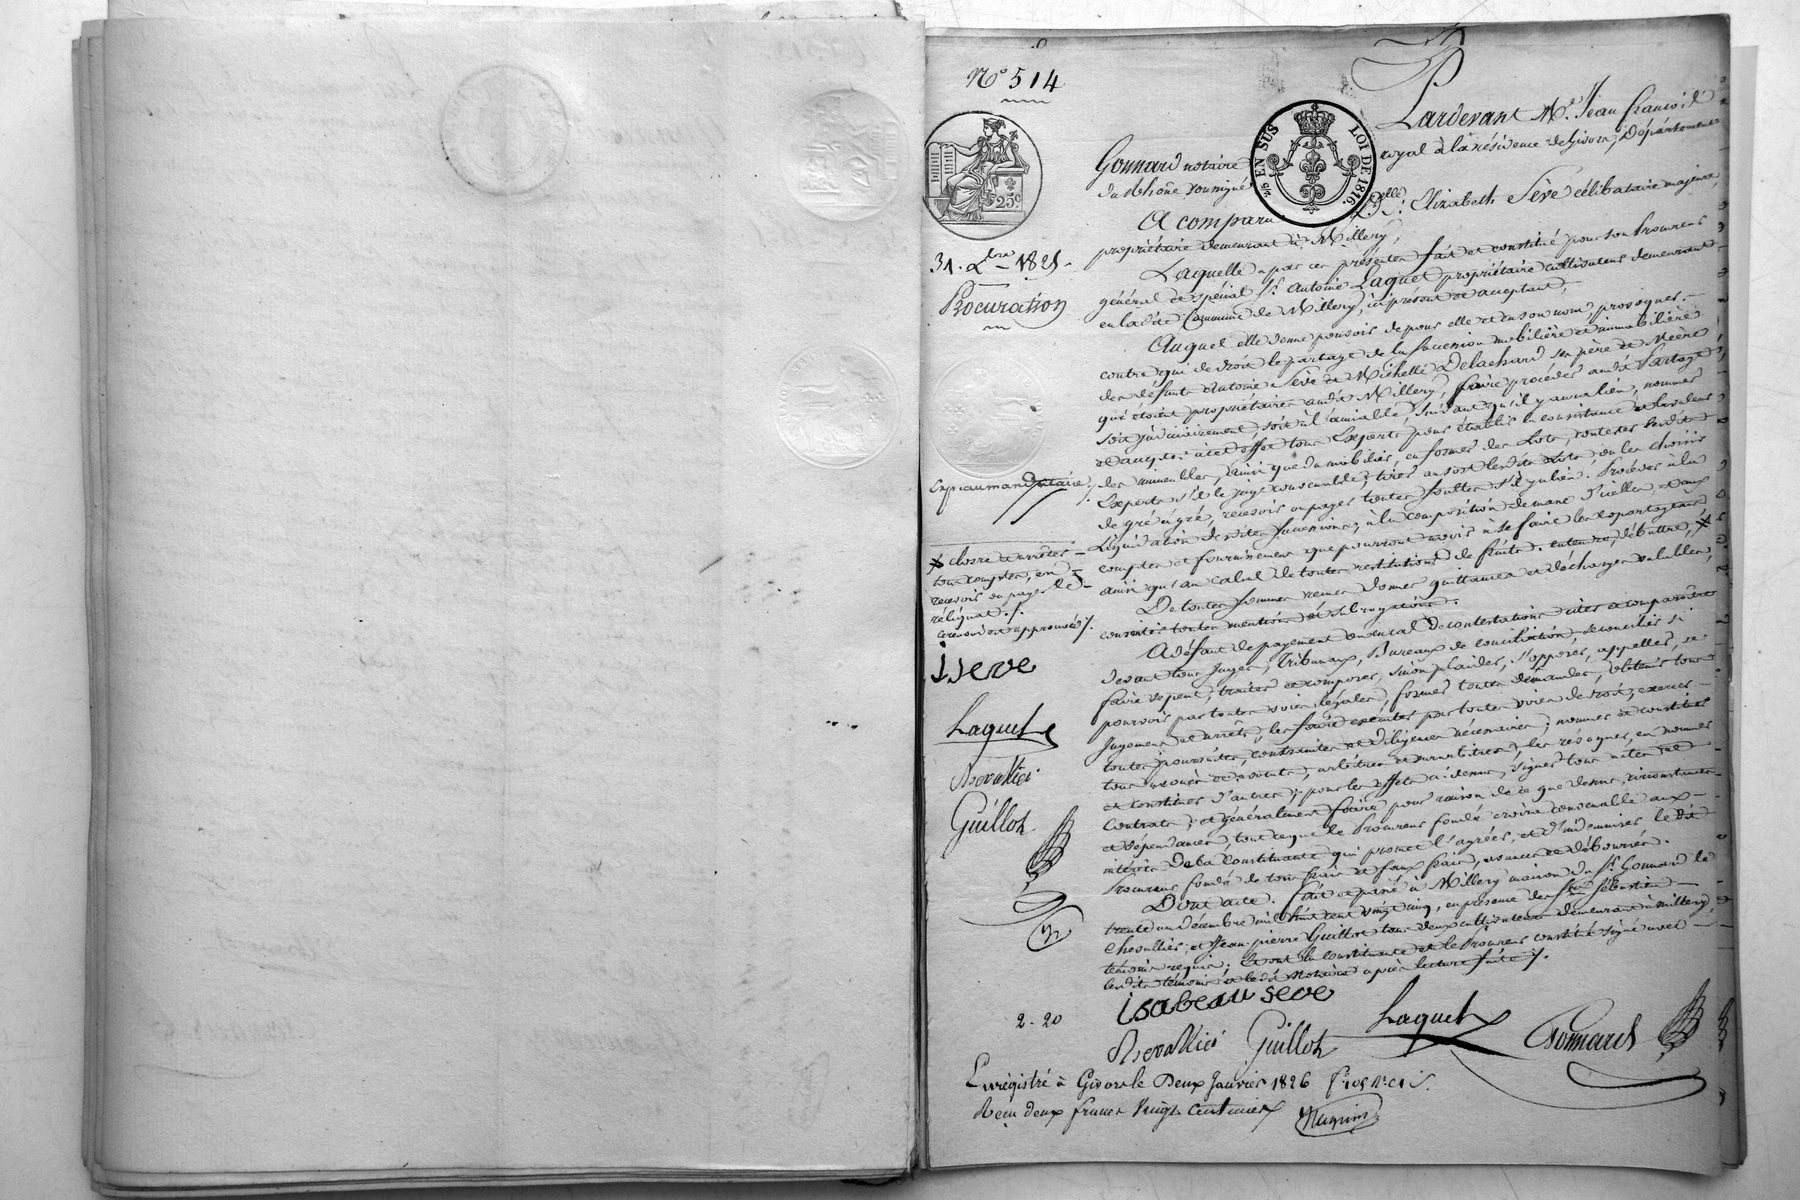 N° 514
Pardevant Me. Jean François
Gonnard notaire royal à la résidence de Givors, Département
du Rhône soussigné
EN SUS
LOI DE 1816.
25c
A comparu Dlle. Elizabeth Sève célibataire majeure,
propriétaire demeurant à Millery,
31. Xbre 1825.
Procuration
Laquelle a par ces présentes fait et constitué pour son Procureur
général et spécial Sr. Antoine Laquet propriétaire cultivateur demeurant
en ladite Commune de Millery, ici présent et acceptant,
Auquel elle donne pouvoir de pour elle et en son nom, provoquer
contre qui de droit le partage de la succession mobilière et immobilière
des défunts Antoine Sève et Michelle Delachard ses père et Mère
qui étoient propriétaires audit Millery, faire procéder audit Partage
soit judiciairement, soit à l'amiable, suivant qu'il y aura lieu, nommer
et accepter à cet effet tous Experts pour établir la consistance et la valeur
des immeubles, ainsi que du mobilier, en former des Lots,
Experts s'il le juge convenable, tirer au sort lesdits Lots ou les choisir
de gré à gré, recevoir ou payer toutes soultes s'il y a lieu. Procéder à la
Liquidation desdites successions, à la composition de masse d'icelles, et aux
comptes et fournissemens que pourront avoir à se faire les copartageans
ainsi qu'au calcul de toutes restitutions de fruits. entendre, débattre,
clorre et arrêter
tous comptes, en
recevoir ou payer le
réliquat ./.
ce renvoi est approuvé ./.
De toutes sommes reçues donner quittances et décharges valables,
consentir toutes mentions et subrogations.
A défaut de payement ou en cas de contestations citer et comparoître
devant tous Juges, Tribunaux, Bureaux de conciliation, se concilier si
faire se peut, traiter et composer, sinon plaider, s'opposer, appeller, se
pourvoir par toutes voies légales, former toutes demandes, obtenir tous
Jugemens et arrêts, les faire exécuter par toutes voies de droit, exercer
toutes poursuites, contraintes et diligences nécessaires; nommer et constituer
tous avoués et avocats, arbitres et surarbitres, les révoquer, en nommer
et constituer d'autres; pour les effets ci dessus, signer tous actes et
Contrats; et généralement faire pour raison de ce que dessus, circonstances
et dépendances, tout ce que le Procureur fondé croira convenable aux
intérêts de la Constituante qui promet l'agréer, et d'indemniser ledit
Procureur fondé de tous frais et faux frais, avances et déboursés.
Dont acte. Fait et passé à Millery maison du Sr. Gonnard le
trente un décembre mil huit cent vingt cinq, en présence des Srs. Sébastien
Chevallier, et Jean pierre Guillot tous deux cultivateurs demeurant à Millery
témoins requis. Et ont la constituante et le Procureur constitué signé avec
lesdits témoins et ledit Notaire après lecture faite ./.
iseve
Laquet
Chevallier
Guillot
isabeau seve
Laquet
2. 20
Chevallier Guillot Gonnard
Enregistré à Givors le Deux Janvier 1826
Reçu deux francs Vingt centimes